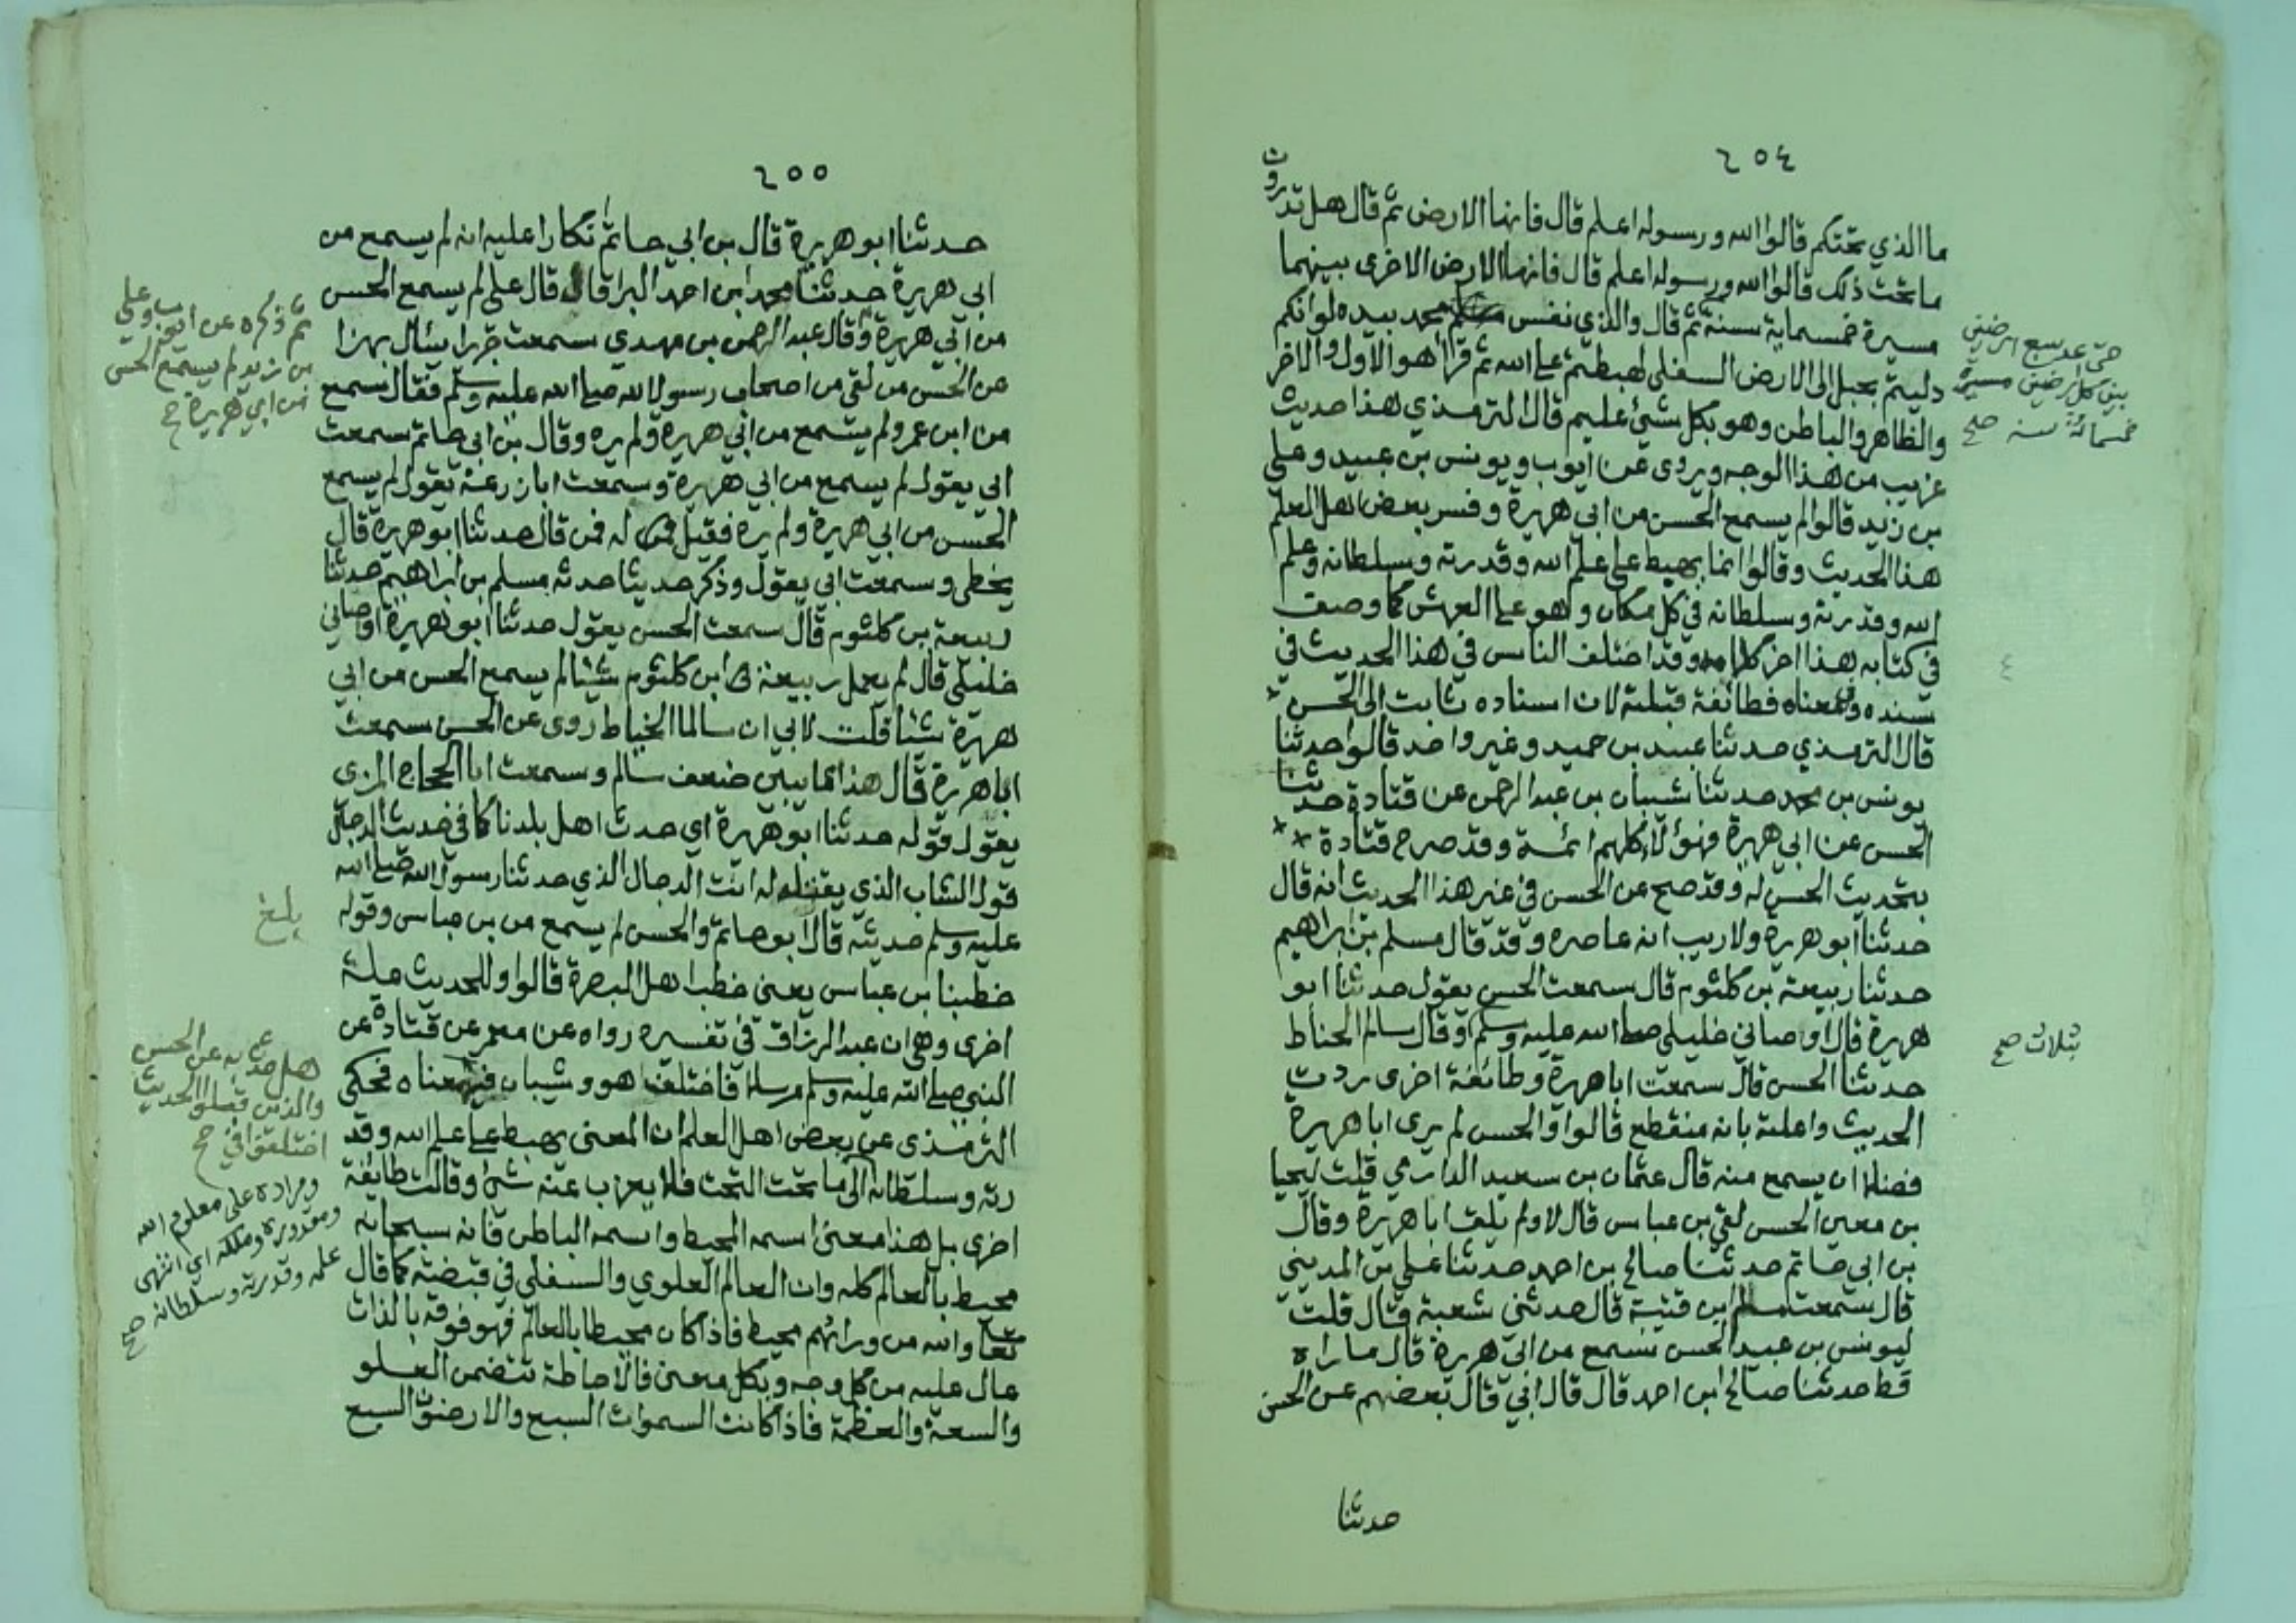 ٢٥٤
ما الذي تحتكم قالوا الله ورسوله اعلم قال فانها الارض ثم قال هل تدرون
ما تحت ذلك قالوا الله ورسوله اعلم قال فانها الارض الاخرى بينهما
مسيرة خمسماية سنة ثم قال والذي نفس محمد بيده لو انكم
دليتم بحبل الى الارض السفلى لهبطتم على الله ثم قرأ هو الاول والاخر
والظاهر والباطن وهو بكل شيئ عليم قال الترمذي هذا حديث
غريب من هذا الوجه ويروى عن ايوب ويونس بن عبيد وعلي
بن زيد قالوا لم يسمع الحسن من ابي هريرة وفسر بعض اهل العلم
هذا الحديث وقالوا انما يهبط على علم الله وقدرته وسلطانه وعلم
الله وقدرته وسلطانه في كل مكان وهو على العرش كما وصف
في كتابه هذا اخر كلامه وقد اختلف الناس في هذا الحديث في
سنده وفي معناه فطائفة قبلته لان اسناده ثابت الى الحسن
قال الترمذي حدثنا عبد بن حميد وغير واحد قالوا حدثنا
يونس بن محمد حدثنا شيبان بن عبد الرحمن عن قتادة حدثنا
الحسن عن ابي هريرة فهؤلاء كلهم ائمة وقد صرح قتادة
بتحديث الحسن له وقد صح عن الحسن في غير هذا الحديث انه قال
حدثنا ابو هريرة ولا ريب انه عاصره وقد قال مسلم بن ابراهيم
حدثنا ربيعة بن كلثوم قال سمعت الحسن يقول حدثنا ابو
هريرة قال اوصاني خليلي صلى الله عليه وسلم وقال سالم الحناط
حدثنا الحسن قال سمعت ابا هريرة وطائفة اخرى ردت
الحديث واعلته بانه منقطع قالوا والحسن لم يرى ابا هريرة
فضلا ان يسمع منه قال عثمان بن سعيد الدارمي قلت ليحيا
بن معين الحسن لقي بن عباس قال لا ولم يلق ابا هريرة وقال
بن ابي حاتم حدثنا صالح بن احمد حدثنا علي بن المديني
قال سمعت سلم بن قتيبة قال حدثني شعبة قال قلت
ليونس بن عبيد الحسن سمع من ابي هريرة قال ما راه
قط حدثنا صالح ابن احمد قال قال ابي قال بعضهم عن الحسن
حدثنا
حتى عد سبع ارضين
بين كل ارضين مسيرة
خمسمائة سنه صح
بثلاث صح
٢٥٥
حدثنا ابو هريرة قال بن ابي حاتم انكارا عليه انه لم يسمع من
ابي هريرة حدثنا محمد ابن احمد البرا قال قال علي لم يسمع الحسن
من ابي هريرة وقال عبد الرحمن بن مهدي سمعت جريرا يسأل بهزا
عن الحسن من لقي من اصحاب رسول الله صلى الله عليه وسلم فقال سمع
من ابن عمر ولم يسمع من ابي هريرة ولم يره وقال بن ابي حاتم سمعت
ابي يقول لم يسمع من ابي هريرة وسمعت ابا زرعة يقول لم يسمع
الحسن من ابي هريرة ولم يره فقيل له فمن قال حدثنا ابو هريرة قال
يخطى وسمعت ابي يقول وذكر حديثا حدثه مسلم بن ابراهيم حدثنا
ربيعة بن كلثوم قال سمعت الحسن يقول حدثنا ابو هريرة اوصاني
خليلي قال لم يعمل ربيعة ابن كلثوم شيئا لم يسمع الحسن من ابي
هريرة شيئا قلت لابي ان سالما الخياط روى عن الحسن سمعت
ابا هريرة قال هذا مما يبين ضعف سالم وسمعت ابا الحجاج المزى
يقول قوله حدثنا ابو هريرة اي حدث اهل بلدنا كما في حديث الدجال
قول الشاب الذي يقتله له انت الدجال الذي حدثنا رسول الله صلى الله
عليه وسلم حديثه قال ابو حاتم والحسن لم يسمع من بن عباس وقوله
خطبنا بن عباس يعني خطب اهل البصرة قالوا وللحديث علة
اخرى وهي ان عبد الرزاق في تفسيره رواه عن معمر عن قتادة عن
النبي صلى الله عليه وسلم مرسلا فاختلف هو وشيبان فيه معناه فحكى
الترمذي عن بعض اهل العلم ان المعنى يهبط على علم الله وقد
رته وسلطانه الى ما تحت التحت فلا يعزب عنه شئ وقالت طايفة
اخرى بل هذا معنى اسمه المحيط واسمه الباطن فانه سبحانه
محيط بالعالم كله وان العالم العلوي والسفلي في قبضته كما قال
تعالى والله من ورائهم محيط فاذا كان محيطا بالعالم فهو فوقه بالذات
عال عليه من كل وجه وبكل معنى فالاحاطة تتضمن العلو
والسعة والعظمة فاذا كانت السموات السبع والارضون السبع
ثم ذكره عن ايوب وعلي
بن زيد لم يسمع الحسن
من ابي هريرة صح
بلغ
هل حدث به عن الحسن
والذين قبلوا الحديث
اختلفوا في صح
ومراده على معلوم الله
ومقدوره وملكه اي انتهى
علمه وقدرته وسلطانه صح